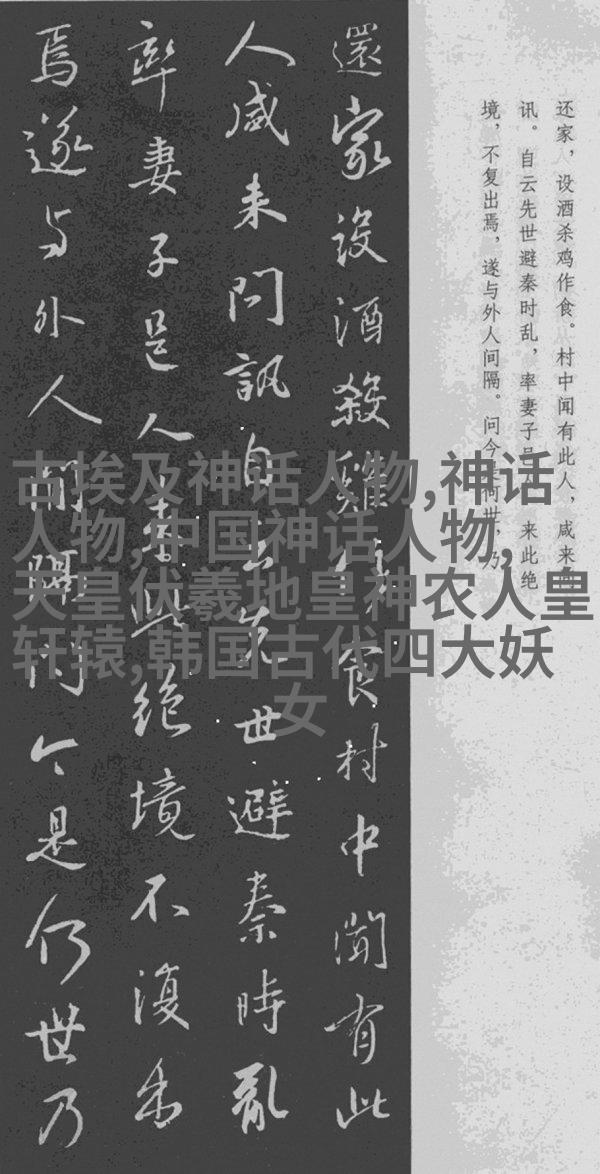 还家，设酒杀鸡作食。村中闻有此人，咸来问
讯。自云先世避秦时乱，率妻子邑人来此绝
境，不复出焉，遂与外人间隔。问今是何世，乃
還家設酒殺雞作食村中聞有此
人咸来問訊自云先世避秦時亂
率妻子邑人来此絶境不復出
焉遂与外人間隔問今是何世乃
古埃及神话人物,神话
人物,中国神话人物,
天皇伏羲地皇神农人皇
轩辕,韩国古代四大妖
女